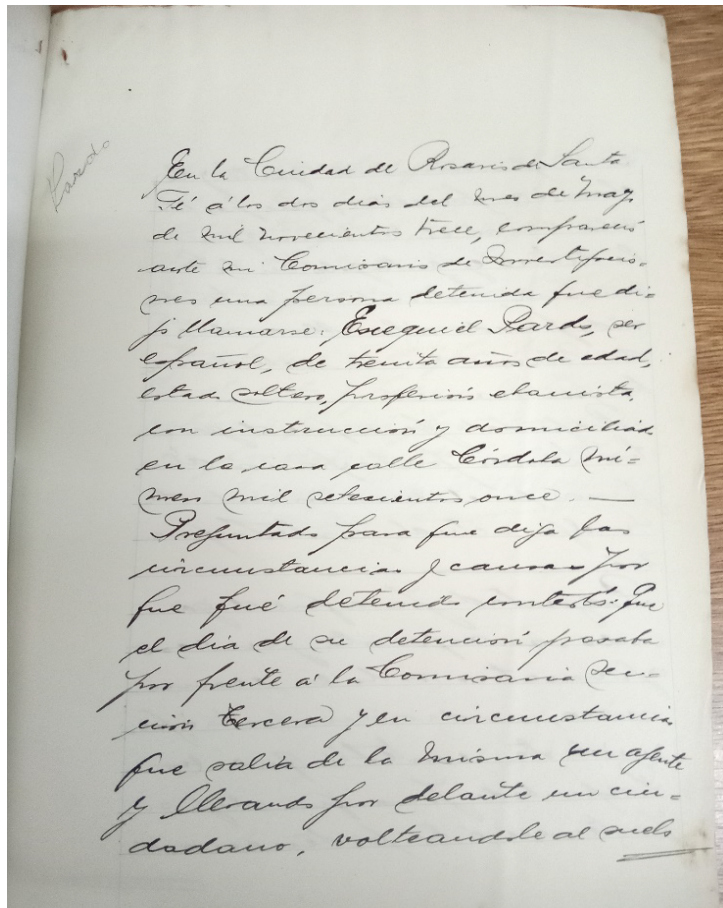 Pardo
En la Ciudad de Rosario de Santa
Fé á los dos dias del mes de Mayo
de mil novecientos trece, compareció
ante mi Comisario de Investigacio-
nes una persona detenida que di-
jo llamarse: Esequiel Pardo, ser
español, de treinta años de edad,
estado soltero, profesión ebanista,
con instrucción y domiciliado
en la casa calle Córdoba nú-
mero mil setecientos once. —
Preguntado para que diga las
circunstancias y causas por
que fué detenido contestó: Que
el dia de su detención pasaba
por frente á la Comisaria sec-
ción tercera y en circunstancia
que salia de la misma un agente
y llevando por delante un ciu-
dadano, volteandole al suelo